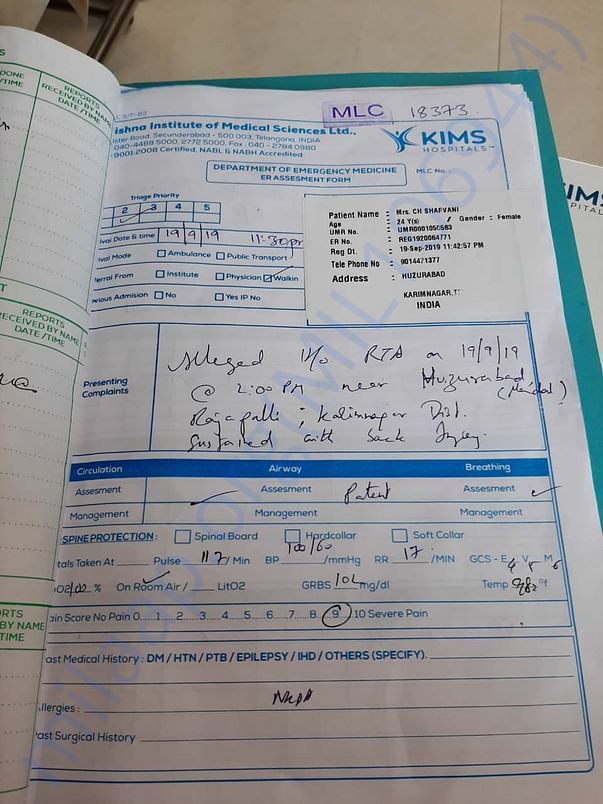 S
DONE /TIME
REPORTS RECEIVED BY NAME DATE /TIME
REPORTS RECEIVED BY NAME DATE /TIME
REPORTS BY NAME TIME
MLC 18373
ishna Institute of Medical Sciences Ltd.,
ister Road, Secunderabad - 500 003, Telangana, INDIA
040-4488 5000, 2772 5000, Fax : 040 - 2784 0980
9001:2008 Certified, NABL & NABH Accredited
KIMS
HOSPITALS
DEPARTMENT OF EMERGENCY MEDICINE
ER ASSESMENT FORM
MLC No. :
Triage Priority
2 3 4 5
ival Date & time 19/9/19 11:30pm
ival Mode Ambulance Public Transport
erral From Institute Physician Walkin
evious Admision No Yes IP No
Patient Name : Mrs. CH SHAFVANI
Age : 24 Y(s) / Gender : Female
UMR No. : UMR0001050583
ER No. : REG1920064771
Reg Dt. : 19-Sep-2019 11:42:57 PM
Tele Phone No : 9014471377
Address : HUZURABAD
KARIMNAGAR,
INDIA
Presenting Complaints
Alleged H/o RTA on 19/9/19
@ 2:00 PM near Huzurabad (Mandal)
Dist.
sustained with back Injury
Circulation Airway Breathing
Assesment Assesment Patent Assesment
Management Management Management
SPINE PROTECTION : Spinal Board Hardcollar Soft Collar
tals Taken At Pulse 117/Min BP 100/60 /mmHg RR 17 /MIN GCS - E4 V5 M6
On Room Air / LitO2 GRBS 102 mg/dl Temp °f
ain Score No Pain 0....1....2....3....4....5....6....7....8....9....10 Severe Pain
ast Medical History : DM / HTN / PTB / EPILEPSY / IHD / OTHERS (SPECIFY).
llergies :
ast Surgical History
IMS
PITAL